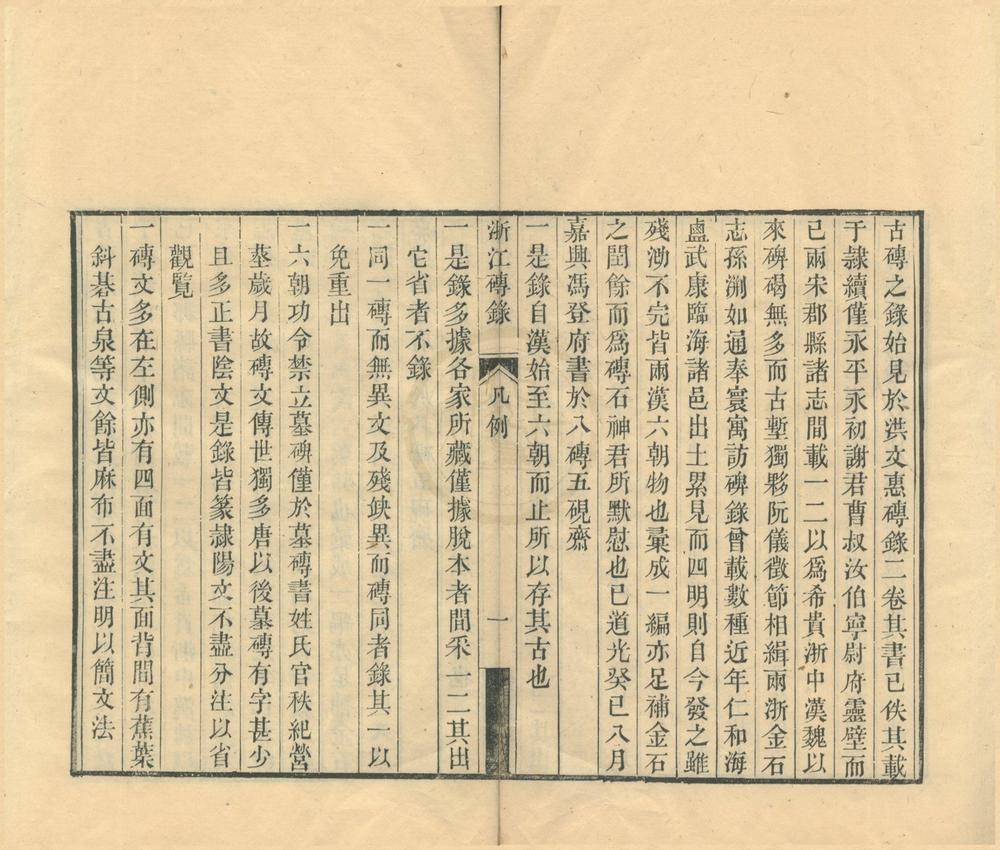 古磚之錄始見於洪文惠磚錄二卷其書已佚其載
于隷續僅永平永初謝君曹叔汝伯寧尉府靈壁而
已兩宋郡縣諸志間載一二以爲希貴浙中漢魏以
來碑碣無多而古塹獨夥阮儀徵節相緝兩浙金石
志孫淵如通奉寰寓訪碑錄曾載數種近年仁和海
鹽武康臨海諸邑出土累見而四明則自今發之雖
殘泐不完皆兩漢六朝物也彙成一編亦足補金石
之閏餘而爲磚石神君所默慰也已道光癸巳八月
嘉興馮登府書於八磚五硯齋
一是錄自漢始至六朝而止所以存其古也
浙江磚錄 凡例 一
一是錄多據各家所藏僅據脫本者間采一二其出
它省者不錄
一同一磚而無異文及殘缺異而磚同者錄其一以
免重出
一六朝功令禁立墓碑僅於墓磚書姓氏官秩紀營
墓歲月故磚文傳世獨多唐以後墓磚有字甚少
且多正書陰文是錄皆篆隷陽文不盡分注以省
觀覽
一磚文多在左側亦有四面有文其面背間有蕉葉
斜碁古泉等文餘皆麻布不盡注明以簡文法